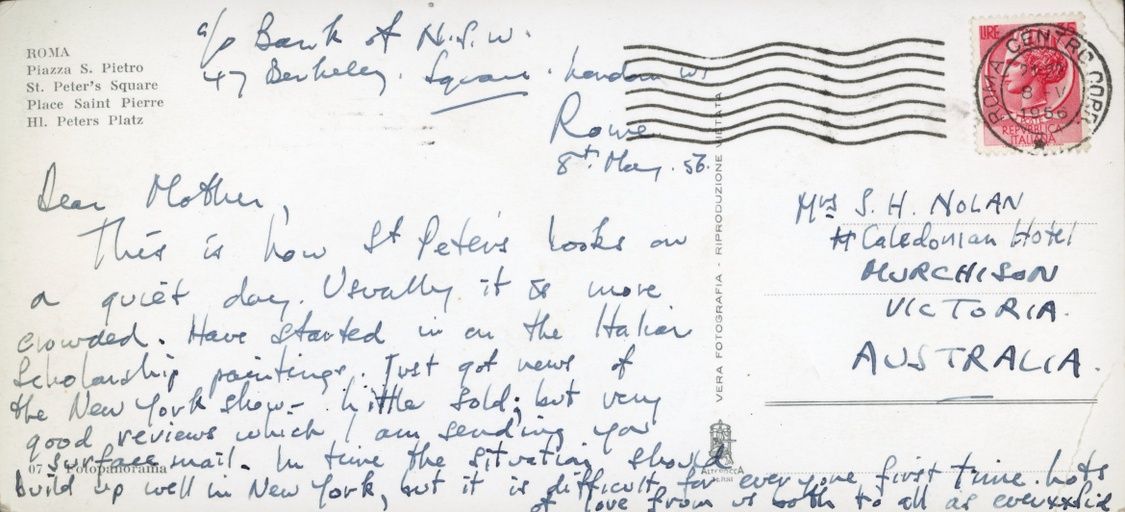 ROMA
Piazza S. Pietro
St. Peter's Square
Place Saint Pierre
Hl. Peters Platz
a/o Bank of N.S.W.
47 Berkeley. Square. London W1
Rome
8th May. 56.
Dear Mother,
This is how St Peters looks on
a quiet day. Usually it is more
crowded. Have started in on the Italian
Scholarship paintings. Just got news of
the New York show - little sold; but very
good reviews which I am sending you
surface mail. In time the situation should
build up well in New York, but it is difficult for everyone first time. Lots
of love from us both to all as ever xx Sid
07 Fotopanorama
VERA FOTOGRAFIA - RIPRODUZIONE VIETATA
LIRE
ROMA CENTRO CORR
8 V
1956
REPVBBLICA
ITALIANA
Mrs S. H. NOLAN
Caledonian Hotel
MURCHISON
VICTORIA.
AUSTRALIA.